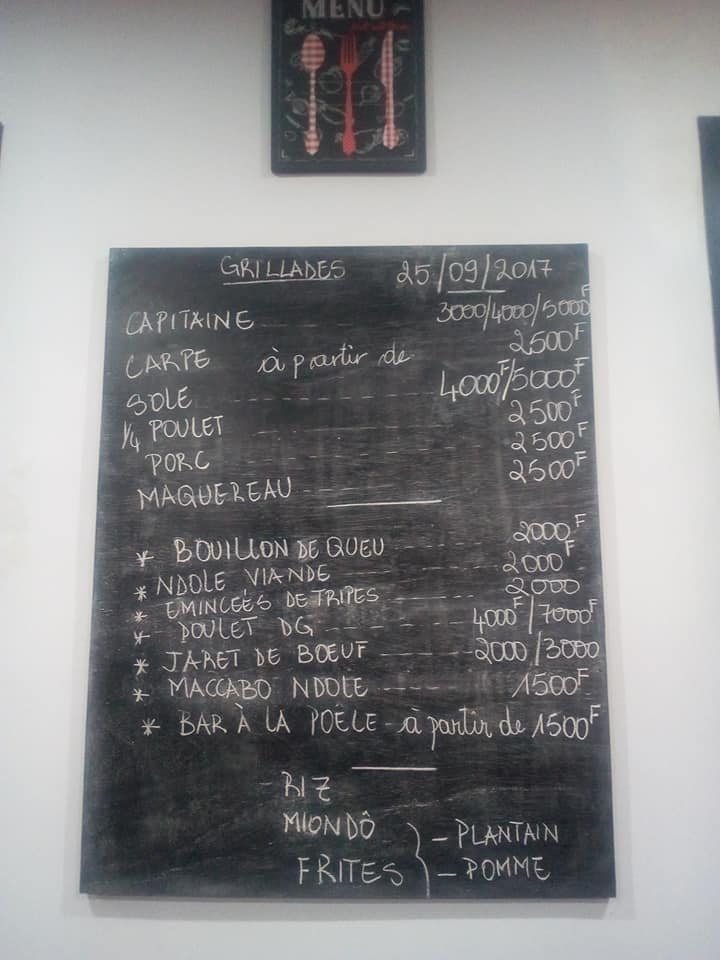 MENU
GRILLADES 25/09/2017
CAPITAINE 3000/4000/5000F
CARPE à partir de 2500F
SOLE 4000F/5000F
1/4 POULET 2500F
PORC 2500F
MAQUEREAU 2500F
* BOUILLON DE QUEU 2000F
* NDOLE VIANDE 2000F
* EMINCEÉS DE TRIPES 2000
* POULET DG 4000F/7000F
* JARET DE BOEUF 2000/3000
* MACCABO NDOLE 1500F
* BAR À LA POËLE - à partir de 1500F
- RIZ
MIONDÔ
FRITES } - PLANTAIN
- POMME